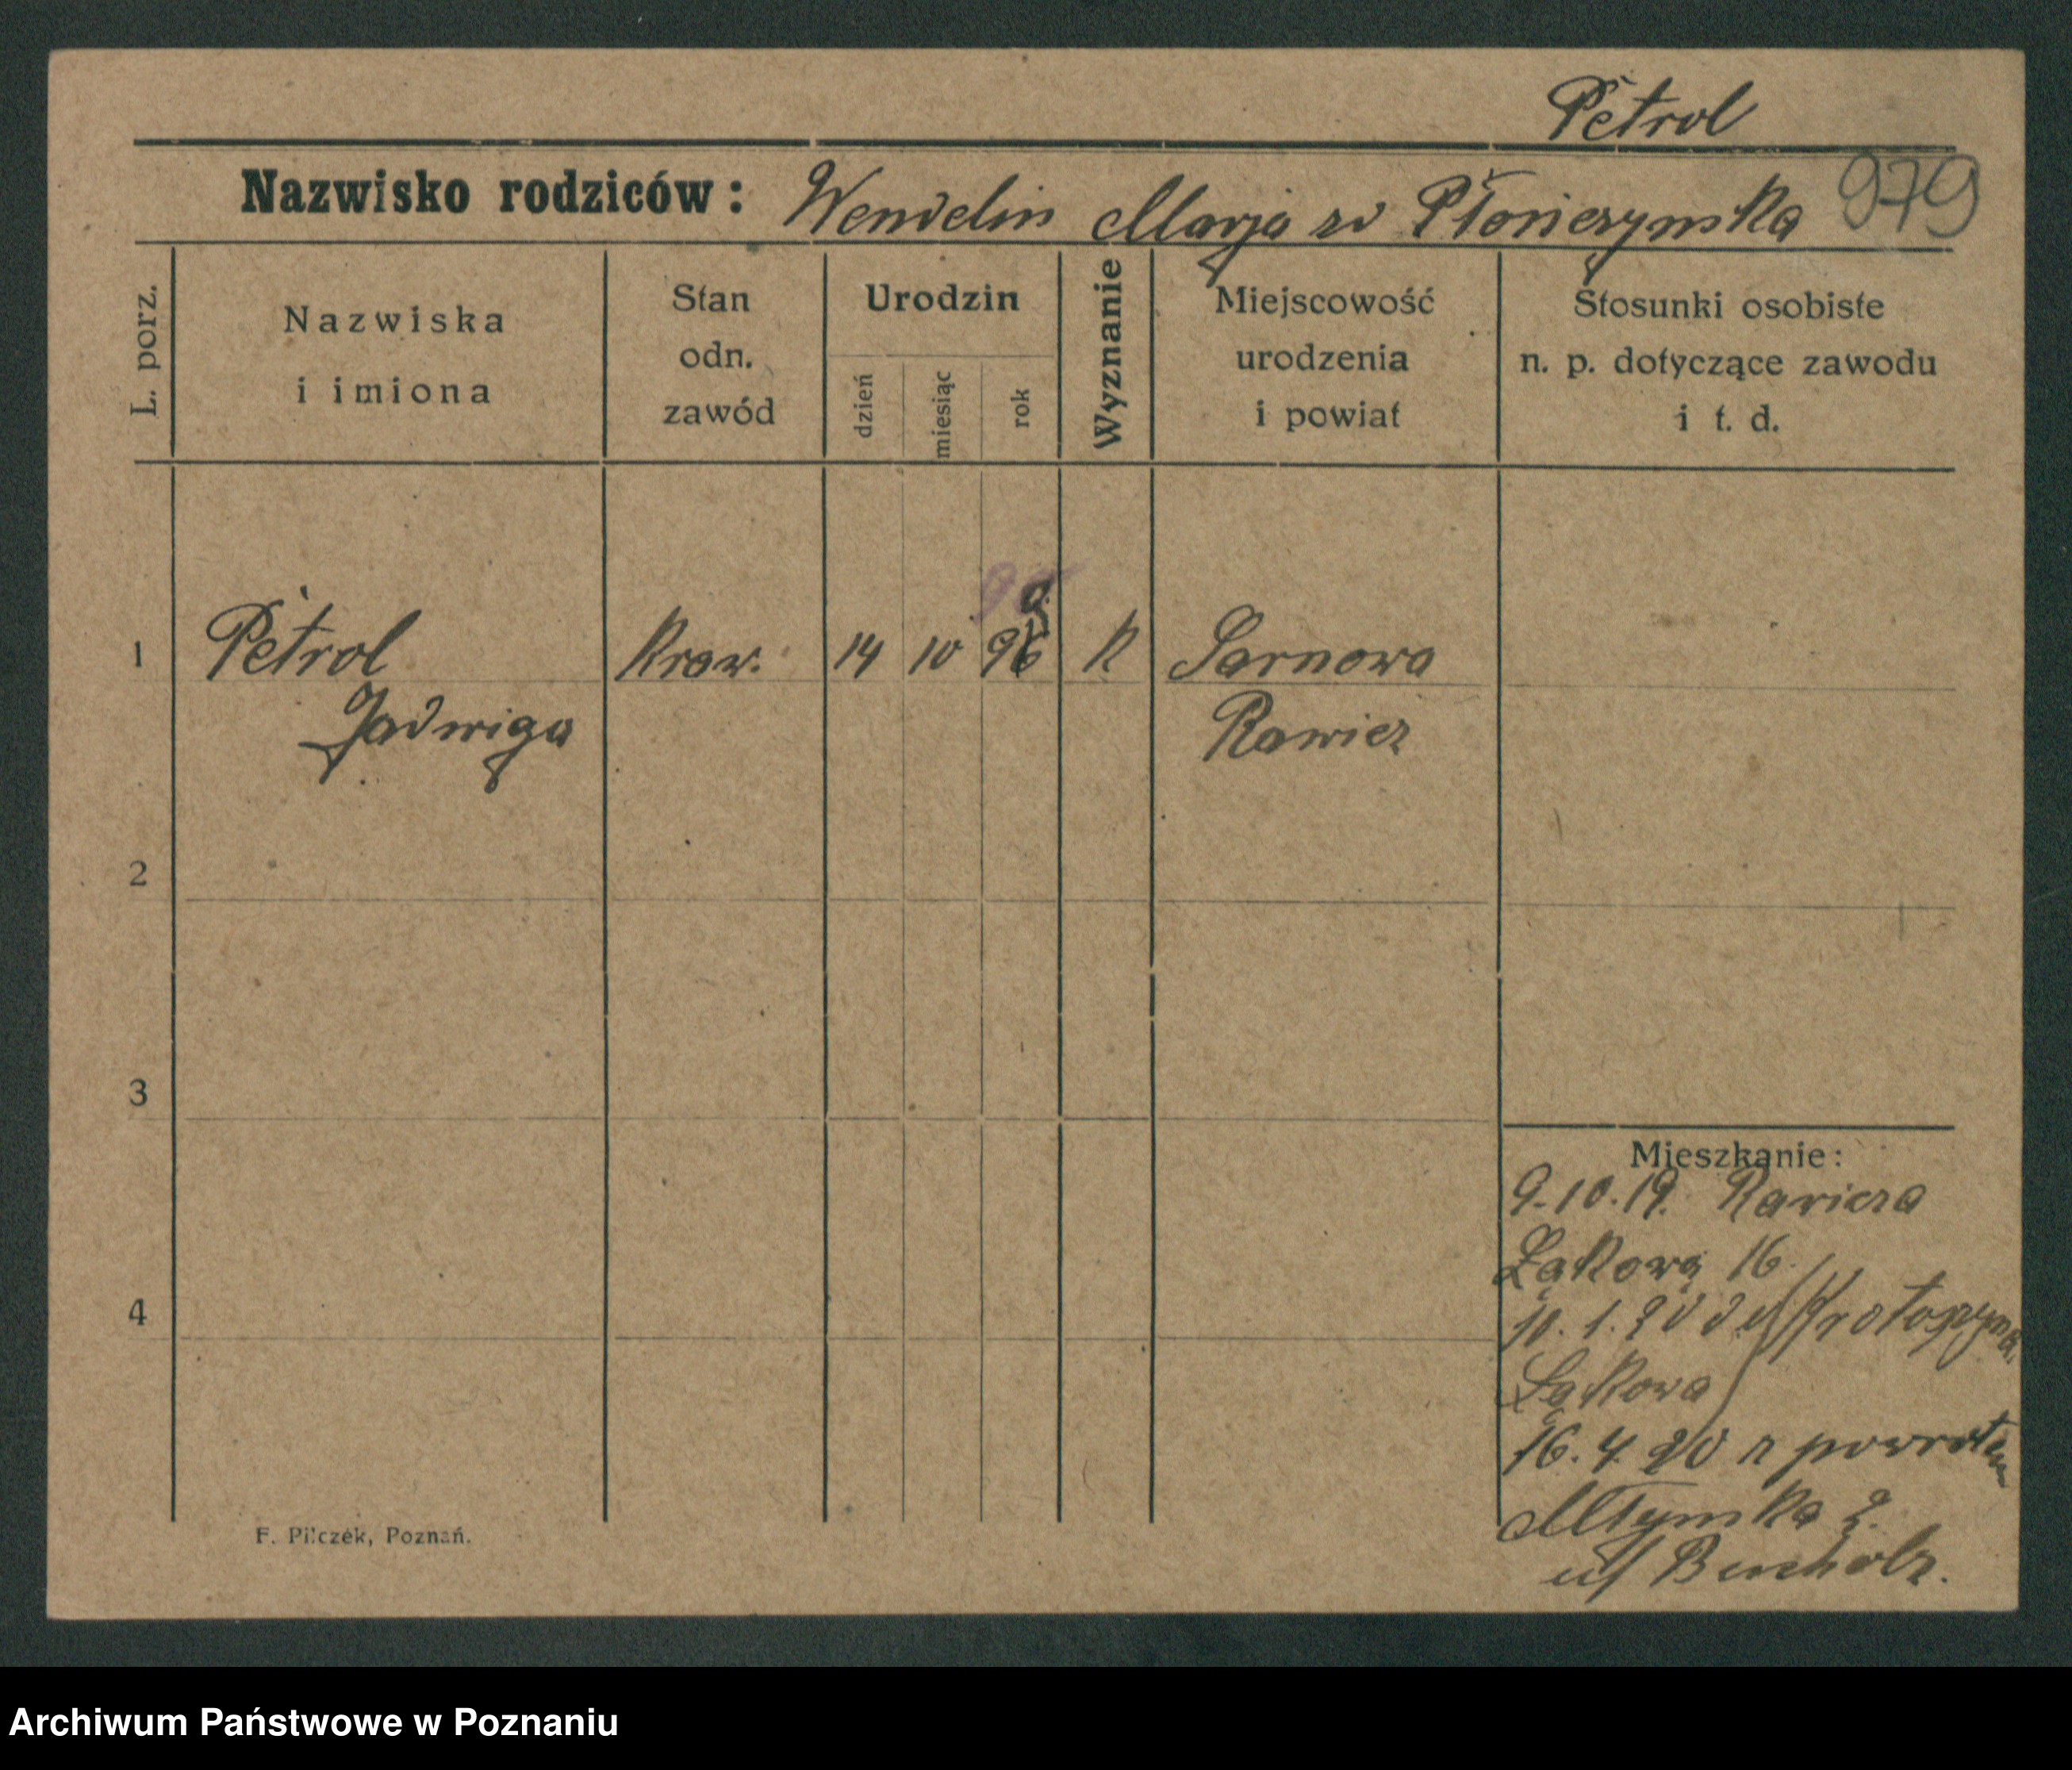 Petrol
Nazwisko rodziców: Wendelin Marja zd Płonczymska 979
L. porz.
Nazwiska
i imiona
Stan
odn.
zawód
Urodzin
dzień
miesiąc
rok
Wyznanie
Miejscowość
urodzenia
i powiat
Stosunki osobiste
n. p. dotyczące zawodu
i t. d.
1 Petrol Kraw. 14 10 96 K Sarnowa
Jadwiga Rawicz
2
3
4
Mieszkanie:
9.10.19. Rawicza
Łąkowa 16
Łąkowa
16.4.20 z powrotem
Młyńska 2.
u/ Bucholz.
F. Pilczek, Poznań.
Archiwum Państwowe w Poznaniu